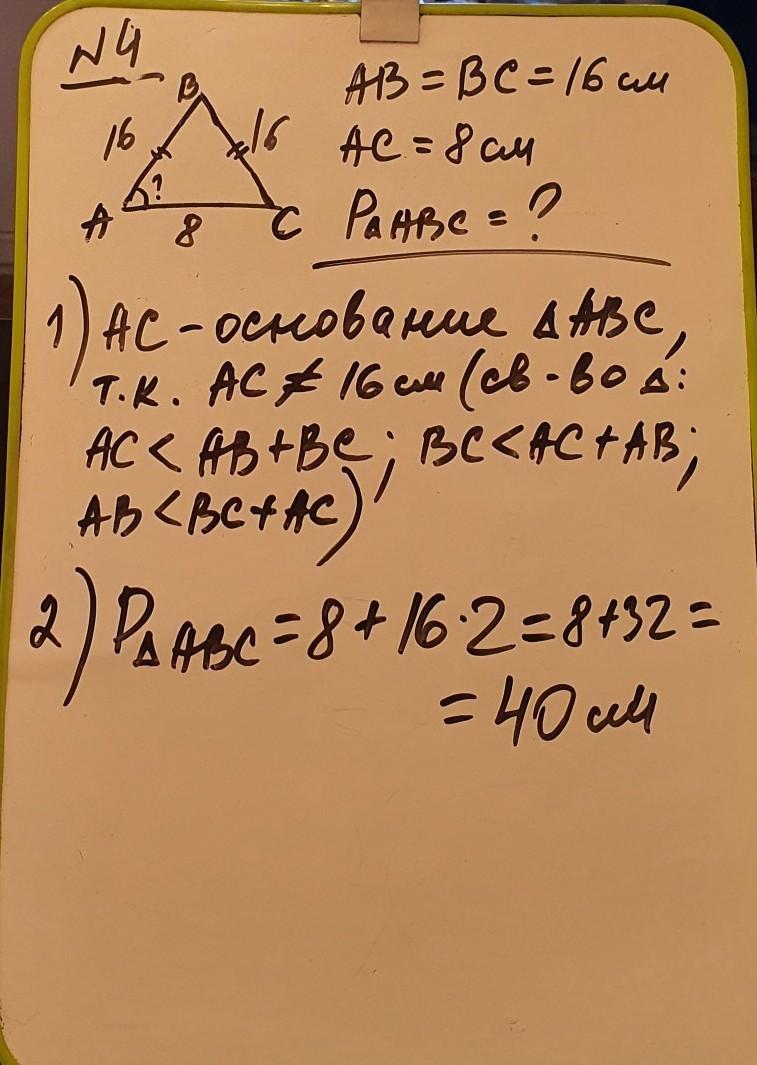 N4
B
16
16
?
A
8
C
AB = BC = 16 см
AC = 8 см
P△ABC = ?
1) AC - основание △ABC,
т.к. AC ≠ 16 см (св-во △:
AC < AB + BC; BC < AC + AB;
AB < BC + AC)
2) P△ABC = 8 + 16 · 2 = 8 + 32 =
= 40 см